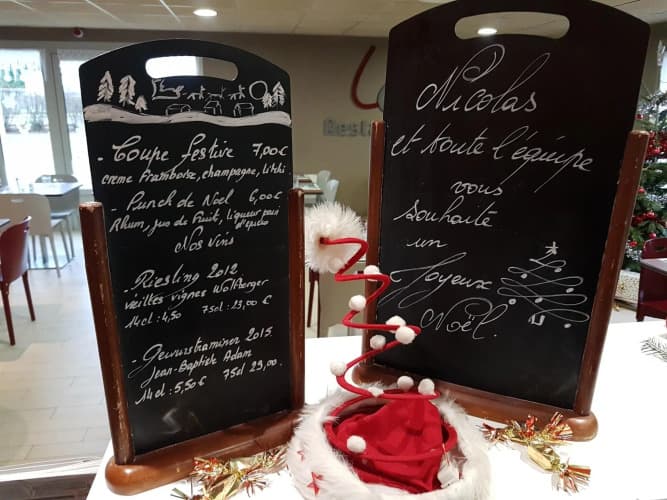 - Coupe festive 7,00€
creme Framboise, champagne, litchi
- Punch de Noël 6,00€
Rhum, jus de Fruit, liqueur pain
d'épices
Nos Vins
- Riesling 2012
vieilles vignes Wolfberger
14cl: 4,50 75cl: 23,00€
- Gewurstraminer 2015
Jean-Baptiste Adam
14cl: 5,50€ 75cl 29,00.
Nicolas
et toute l'équipe
vous
souhaite
un
Joyeux
Noël.